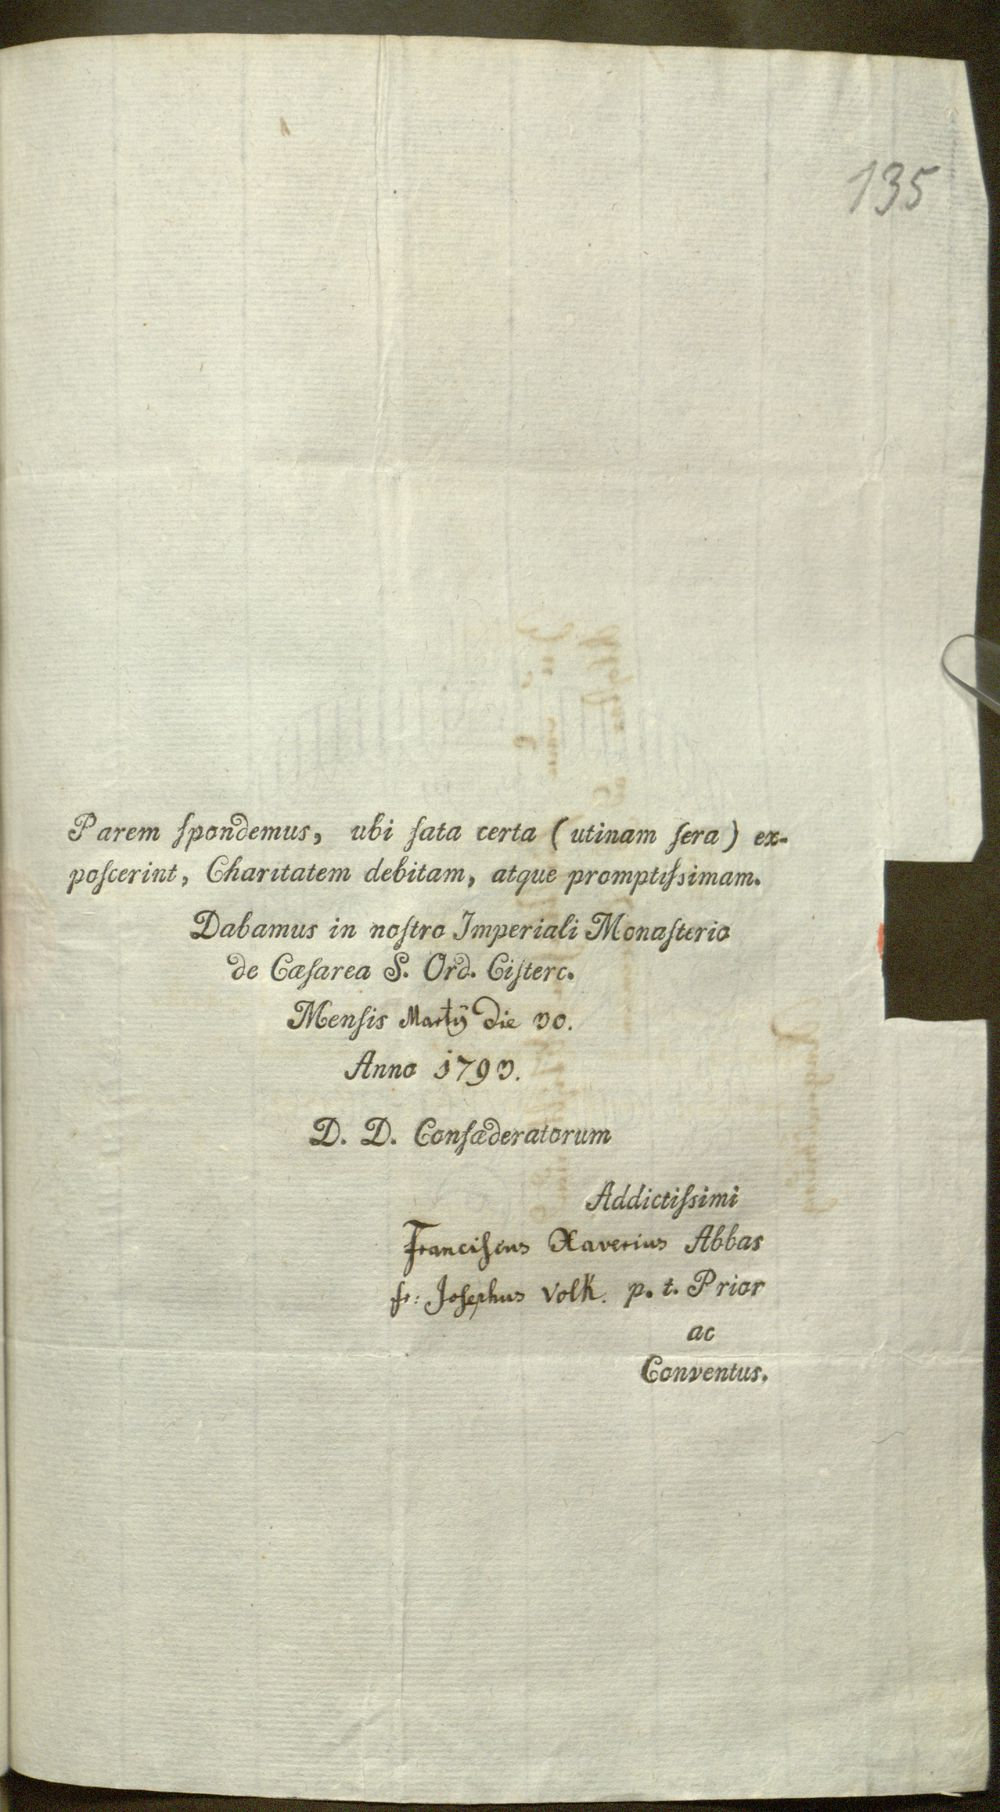 135
Parem ſpondemus, ubi fata certa (utinam ſera) ex-
poſcerint, Charitatem debitam, atque promptiſsimam.
Dabamus in noſtro Imperiali Monaſterio
de Cæſarea S. Ord. Ciſterc.
Mensis Martÿ die 30.
Anno 1793.
D. D. Confæderatorum
Addictiſsimi
Franciſcus Xaverius Abbas
fr: Joſephus Volk. p. t. Prior
ac
Conventus.